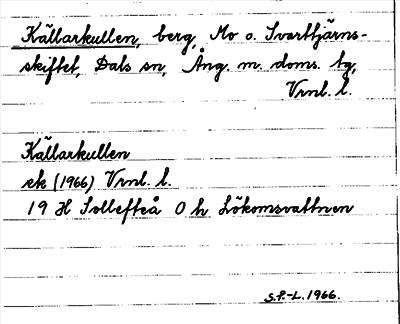 Källarkullen, berg, Mo o. Svarttjärns-
skiftet, Dals sn, Ång. m. doms. tg,
Vrnl. l.
Källarkullen
ek (1966) Vrnl. l.
19 H Sollefteå O h Lökomsvattnen
S.P.-L. 1966.